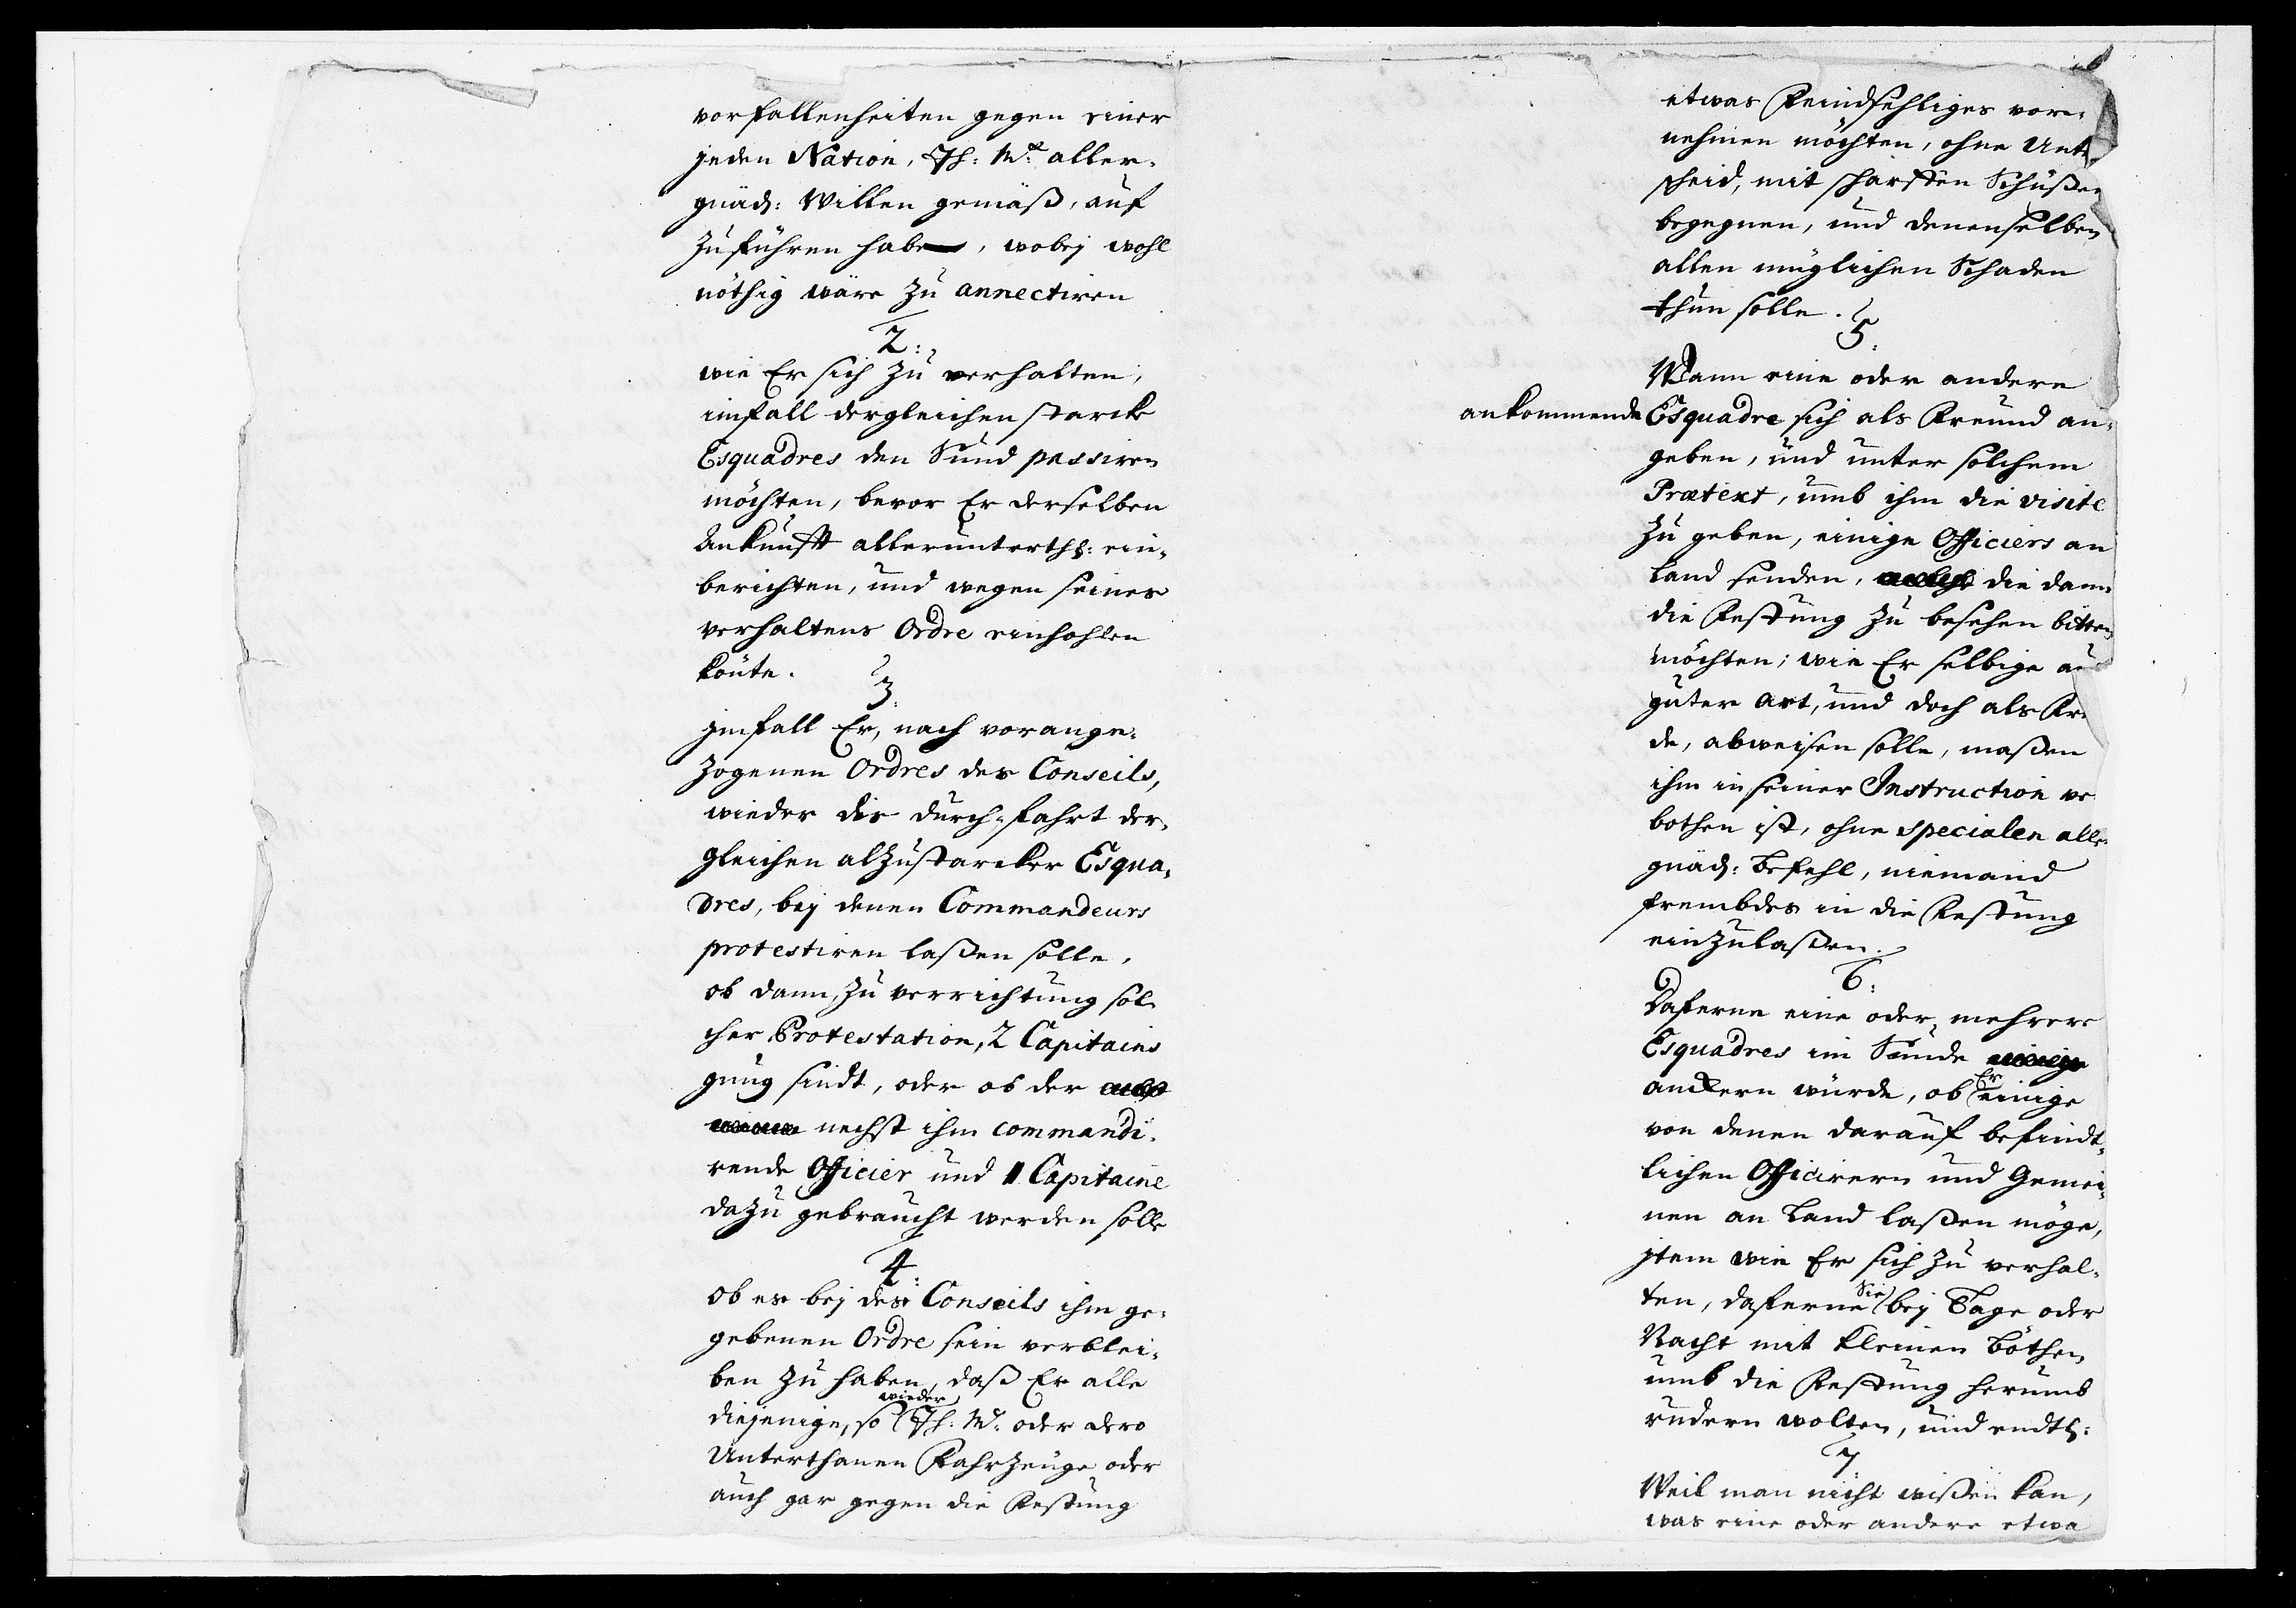 vorfallenheiten gegen einer
jeden Nation, Ih: Mt aller-
gnäd: Willen gemäß, auf
Zuführen habe, wobej wohl
nöthig wäre zu annectiren
2:
wie Er sich zu verhalten,
imfall dergleichen starcke
Esquadres den Sund passiren
möchten, bevor Er derselben
Ankunfft allerunterth: ein-
berichten, und wegen seines
verhaltens Ordre einhohlen
könte.
3.
imfall Er, nach vorange-
zogenen Ordres des Conseils,
wieder die durch-fahrt der-
gleichen alzustarcker Esqua-
dres, bej denen Commandeurs
protestiren laßen solle,
ob dann, zu verrichtung sol-
cher Protestation, 2 Capitains
gnug sindt, oder ob der
nechst ihm commandi-
rende Officier und 1 Capitaine
dazu gebraucht werden solle
4:
Ob es bej des Conseils ihm ge-
gebenen Ordre sein verblei-
ben zu haben, daß Er alle
wieder
diejenige, so Ih: Mt: oder dero
Unterthanen Fahrzeuge oder
auch gar gegen die Festung
etwas Feindsehliges vor-
nehmen möchten, ohne Unter
scheid, mit scharffen Schüßen
begegnen, und denenselben
allen müglichen Schaden
thun solle.
5:
Wann eine oder andere
ankommende Esquadre sich als Freund an-
geben, und unter solchem
Prætext, umb ihm die visite
zu geben, einige Officiers an
Land senden, die dann
die Festung zu besehen bitten
möchten; wie Er selbige au
guter Art, und doch als Fr
de, abweisen solle, maßen
ihm in seiner Instruction ve
bothen ist, ohne specialen aller
gnäd: Befehl, niemand
frembdes in die Festung
einzulaßen.
6:
Daferne eine oder mehrere
Esquadres im Sunde
Er
anckern würde, ob einige
von denen darauf befindt-
lichen Officirern und Gemei-
nen an Land laßen möge,
item wie Er sich zu verhal-
Sie
ten, daferne bej Tage oder
Nacht mit kleinen Böthen
umb die Festung herumb
rudern wolten, und endtl:
7
Weil man nicht wißen kan,
was eine oder andere etwa